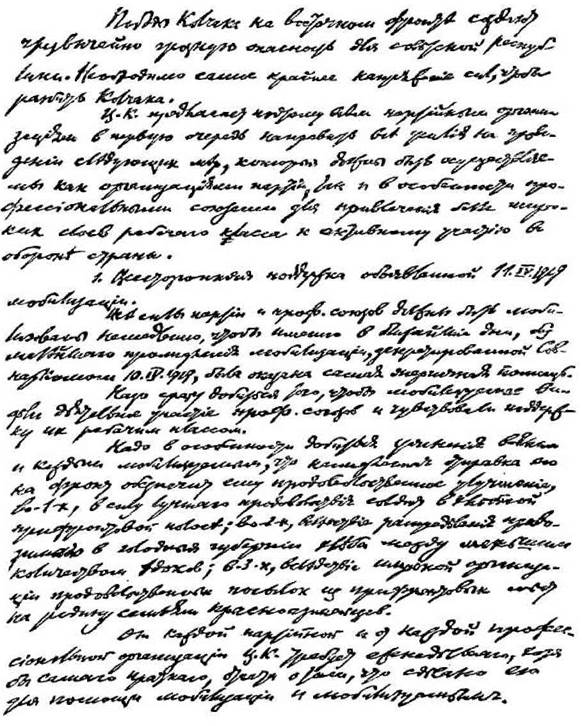 Победы Колчака на восточном фронте создают
чрезвычайно грозную опасность для советской респуб
лики. Необходимо самое крайнее напряжение сил, чтобы
разбить Колчака.
Ц.К. предлагает поэтому всем партийным органи
зациям в первую очередь направить все усилия на прове
дение следующих мер, которые должны быть осуществляе-
мы как организациями партии, так и в особенности про-
фессиональными союзами для привлечения более широ-
ких слоев рабочего класса к активному участию в
обороне страны.
1. Всесторонняя поддержка объявленной 11.IV.1919
мобилизации.
Все силы партии и проф. союзов должны быть моби-
лизованы немедленно, чтобы именно в ближайшие дни, без
малейшего промедления мобилизации, декретированной Сов-
наркомом 10.IV.1919, была оказана самая энергичная помощь.
Надо сразу добиться того, чтобы мобилизуемые ви-
дели деятельное участие проф. союзов и чувствовали поддерж-
ку их рабочим классом.
Надо в особенности добиться уяснения всяким
и каждым мобилизуемым, что немедленная отправка его
на фронт обеспечит ему продовольственное улучшение,
во-1-х, в силу лучшего продовольствия солдат в хлебной
прифронтовой полосе; во-2-х, вследствие распределения приво-
зимого в голодные губернии хлеба между меньшим
количеством едоков; в-3-х, вследствие широкой организа-
ции продовольственных посылок из прифронтовых мест
на родину семьям красноармейцев.
От каждой партийной и от каждой профес-
сиональной организации Ц.К. требует еженедельного, хотя
бы самого краткого, отчета о том, что сделано ею
для помощи мобилизации и мобилизуемым.